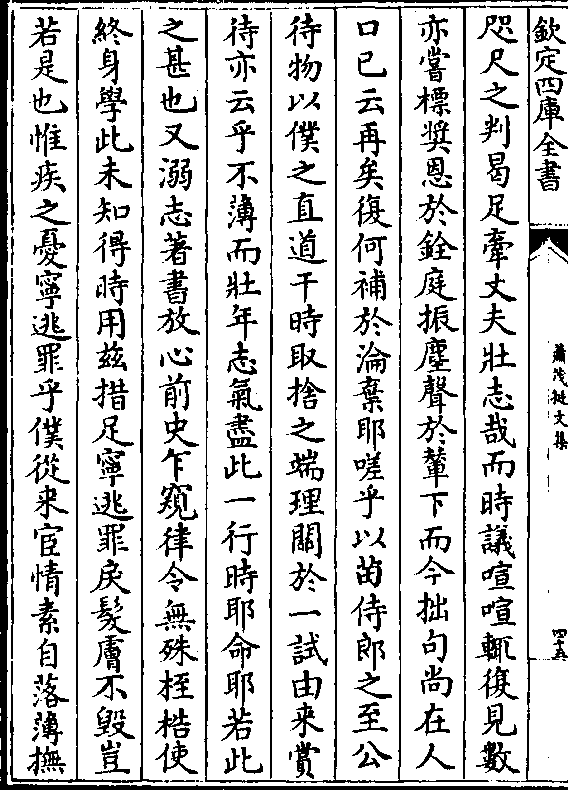 欽定四庫全書
蕭茂挺文集
四十五
咫尺之判曷足牽丈夫壯志哉而時議喧喧輒復見數
亦嘗標奬恩於銓庭振塵聲於輦下而今拙句尚在人
口已云再矣復何補於淪棄耶嗟乎以苗侍郎之至公
待物以僕之直道干時取捨之端理闗於一試由来賞
待亦云乎不薄而壯年志氣盡此一行時耶命耶若此
之甚也又溺志著書放心前史乍窺律令無殊桎梏使
終身學此未知得時用兹措足寧逃罪戾髮膚不毀豈
若是也惟疾之憂寧逃罪乎僕從来宦情素自落薄撫